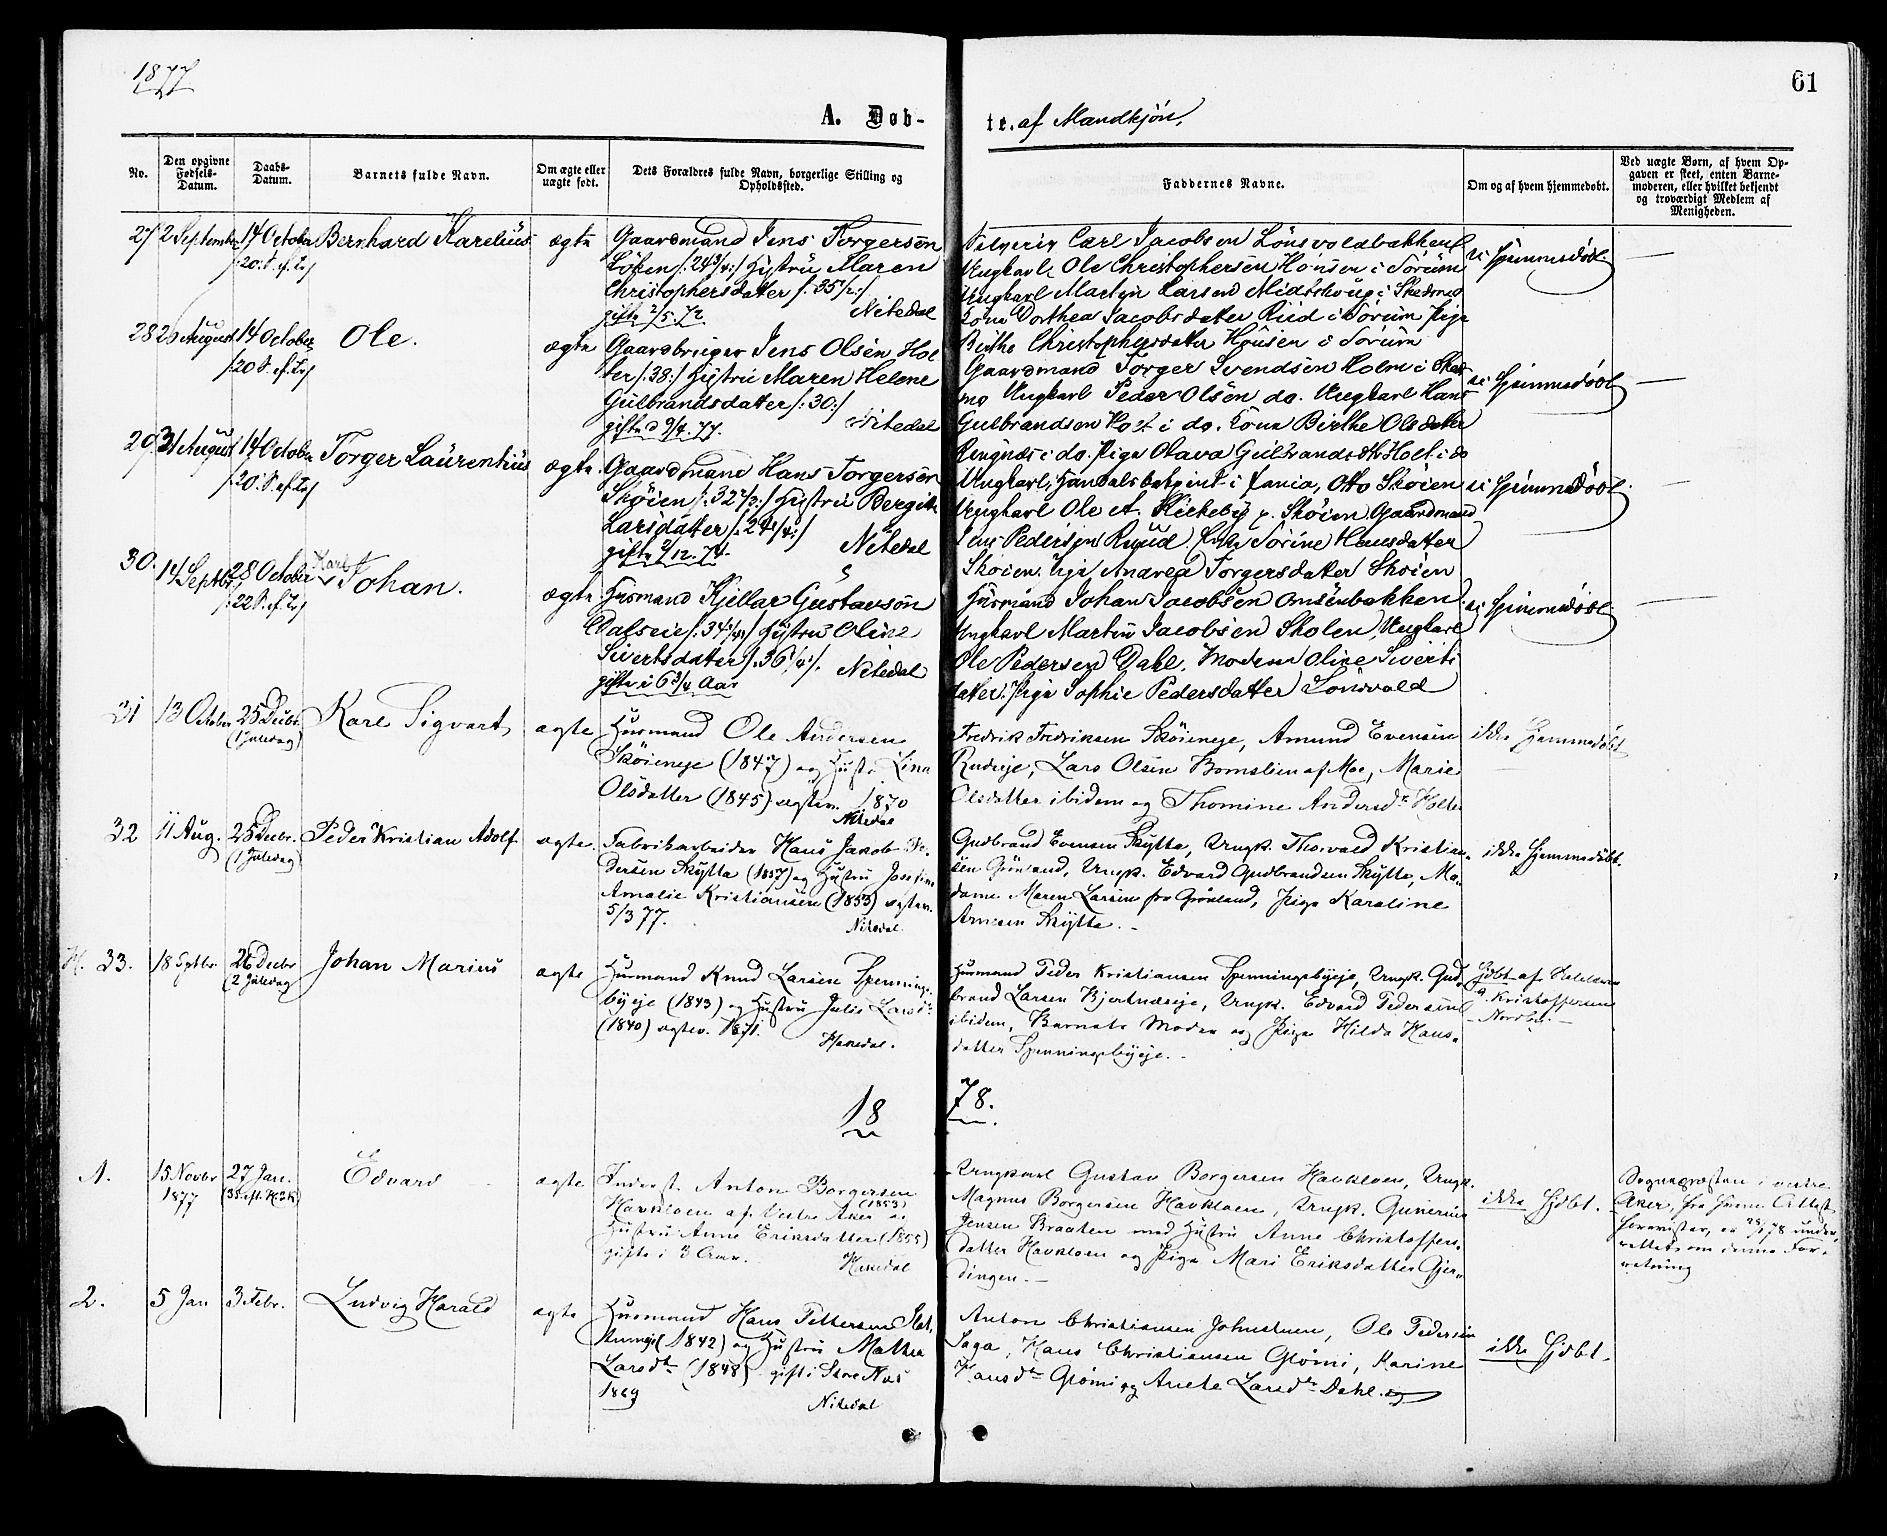 1877
61
A. Døb-
te. af Mandkjøn.
No.
Den opgivne Fødsels-Datum.
Daabs-Datum.
Barnets fulde Navn.
Om ægte eller uægte født.
Dets Forældres fulde Navn, borgerlige Stilling og Opholdssted.
Faddernes Navne.
Om og af hvem hjemmedøbt.
Ved uægte Børn, af hvem Opgaven er skeet, enten Barnemoderen, eller hvilket bekjendt og troværdigt Medlem af Menigheden.
27 2 September 14 October Bernhard Karelius ægte
/:20. S. ef. Tr/
Gaardmand Jens Torgersen
Løken /:24 3/4:/ Hustru Maren
Christophersdatter /:35 1/2:/
gifte 2/5.72. Nitedal
Carl Jacobsen Lønsvoldbakken
Ungkarl Ole Christophersen Hønsen i Sørum
Ungkarl Martin Larsen Midtskoug i Skedsmo
Kone Dorthea Jacobsdatter Riid i Sørum Pige
Birthe Christophersdatter Hønsen i Sørum
ei Hjemmedøbt.
28 20 August 14 October Ole. ægte
/:20 S. ef. Tr/
Gaardbruger Jens Olsen Hol
ter /:38:/ Hustru Maren Helene
Gulbrandsdatter /:30:/
gifte d 9/4.77. Nitedal
Gaardmand Torger Svendsen Holm i Skeds
mo Ungkarl Peder Olsen do. Ungkarl Hans
Gulbrandsen Holt i do. Kone Birthe Olsdatter
Ringnæs i do. Pige Olava Gulbrandsdtr Holt i do
ei Hjemmedøbt
29. 31 August 14 October Torger Laurentius ægte.
/:20. S. ef. Tr/
Gaardmand Hans Torgersen
Skøien /:32 1/2:/ Hustru Bergite
Larsdatter /:24 1/4:/
gifte 9/12.74. Nitedal
Ungkarl, Handelsbetjent i Xania, Otto Skøien
Ungkarl Ole A. Kirkeby p. Skøien Gaardmand
Jens Pedersen Ruud. Enke Sørine Hansdatter
Skøien. Pige Andrea Torgersdatter Skøien
ei Hjemmedøbt.
30. 14 Septbr. 28 October Karl Johan. ægte
/:22 S. ef. Tr/
Husmand Kjellar Gustavsen
Dalseie /:34 1/4:/ Hustru Oline
Sivertsdatter /:36 1/4:/. Nitedal
gifte i 6 3/4 Aar
Husmand Johan Jacobsen Omsenbakken
Ungkarl Martin Jacobsen Skolen, Ungkarl
Ole Pedersen Dahl. Moderen Oline Siverts
datter. Pige Sophie Pedersdatter Lønsvold
ei Hjemmedøbt.
31 13 October 25 Decbr. Karl Sigvart ægte
(1 Juledag)
Husmand Ole Andersen
Skøieneje (1847) og Hustr. Lina
Olsdatter (1845) ægtev. 1870
Nitedal
Fredrik Fredriksen Skøieneje, Amund Evensen
Rudeje, Lars Olsen Bomslien af Moe, Marie
Olsdatter ibidem og Thomine Andersdr Holter
ikke Hjemmedøbt
32 11 Aug. 25 Decbr. Peder Kristian Adolf ægte.
(1 Juledag)
Fabrikarbeider Hans Jakob Pe-
dersen Skytta (1857) og Hustru Josefine
Amalie Kristiansen (1853) ægtev.
5/3 77. Nitedal.
Gudbrand Evensen Skytta, Ungk. Thorvald Kristian-
sen Grønland, Ungk. Edvard Gudbrandsen Skytta, Ma-
dame Maren Larsen fra Grønland, Pige Karoline
Arnesen Skytta.
ikke Hjemmedøbt.
H. 33. 18 Sptbr. 26 Decbr. Johan Marius ægte
2 Juledag
Husmand Knud Larsen Spennings-
byeje (1843) og Hustru Julie Larsdr
(1840) ægtev. 1871.
Hakedal.
Husmand Peder Kristiansen Spenningsbyeje, Ungk. Gud-
brand Larsen Kjertnæseje, Ungk. Edvard Pedersen
ibidem, Barnets Moder og Pige Hilda Hans-
datter Spenningsbyeje.
Hjdbt af
Kristoffersen
Nordby.
18 78.
1. 15 Novbr 1877 27 Jan. Edvard ægte
Inderst. Anton Borgersen
Havkloen af Vestre Aker (1853) og
Hustru Anne Eriksdatter (1855)
gifte i 3 Aar. Hakedal
Ungkarl Gustav Borgersen Havkloen, Ungk.
Magnus Borgersen Havkloen, Ungk. Gunerius
Jensen Braaten med Hustru Anne Christoffers-
datter Havkloen og Pige Mari Eriksdatter Gjer-
dingen.
ikke Hjdbt.
Sognepræsten i vestre
Aker, fra hvem Attest
forevistes, er 28/1 78 under-
rettet om denne For-
retning
2. 5 Jan 3 Febr. Ludvig Harald ægte
Husmand Hans Pettersen Slat-
tumeje (1842) og Hustru Mathea
Larsdtr (1848) gift i Store Næs
1869 Nitedal
Anton Christiansen Johnstuen, Ole Pedersen
Saga, Hans Christiansen Glømi, Karine
Hansdr Glømi og Anete Larsdr Dahl.
ikke Hjdbt.